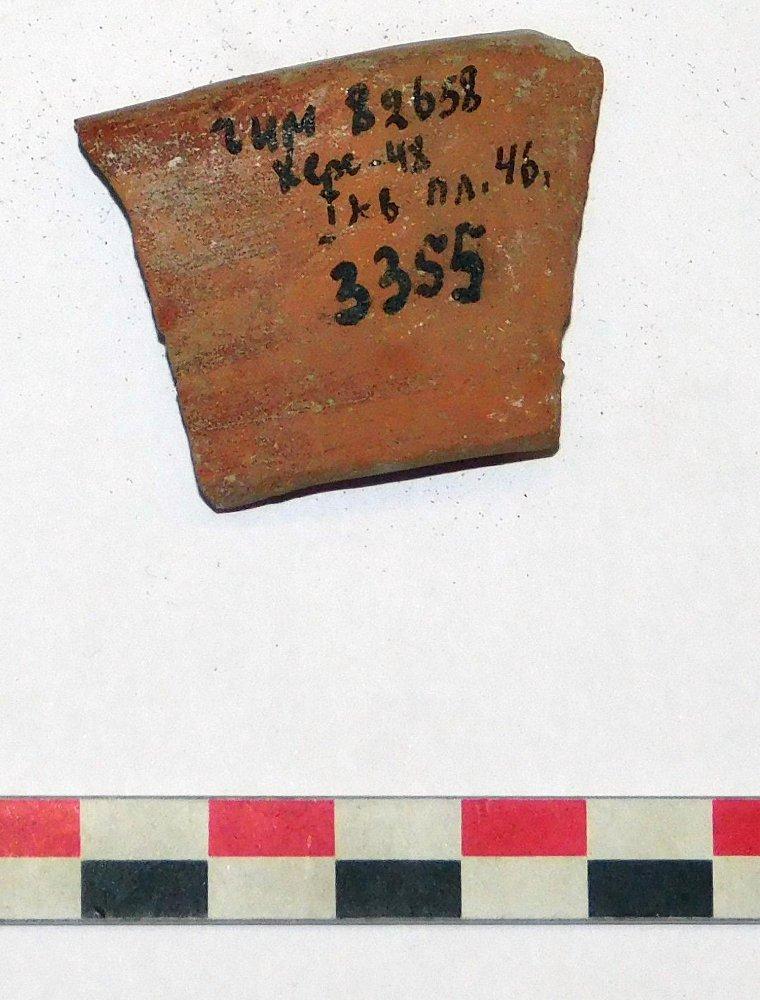 гим 82658
Херс-48
I кв пл. 46.
3355